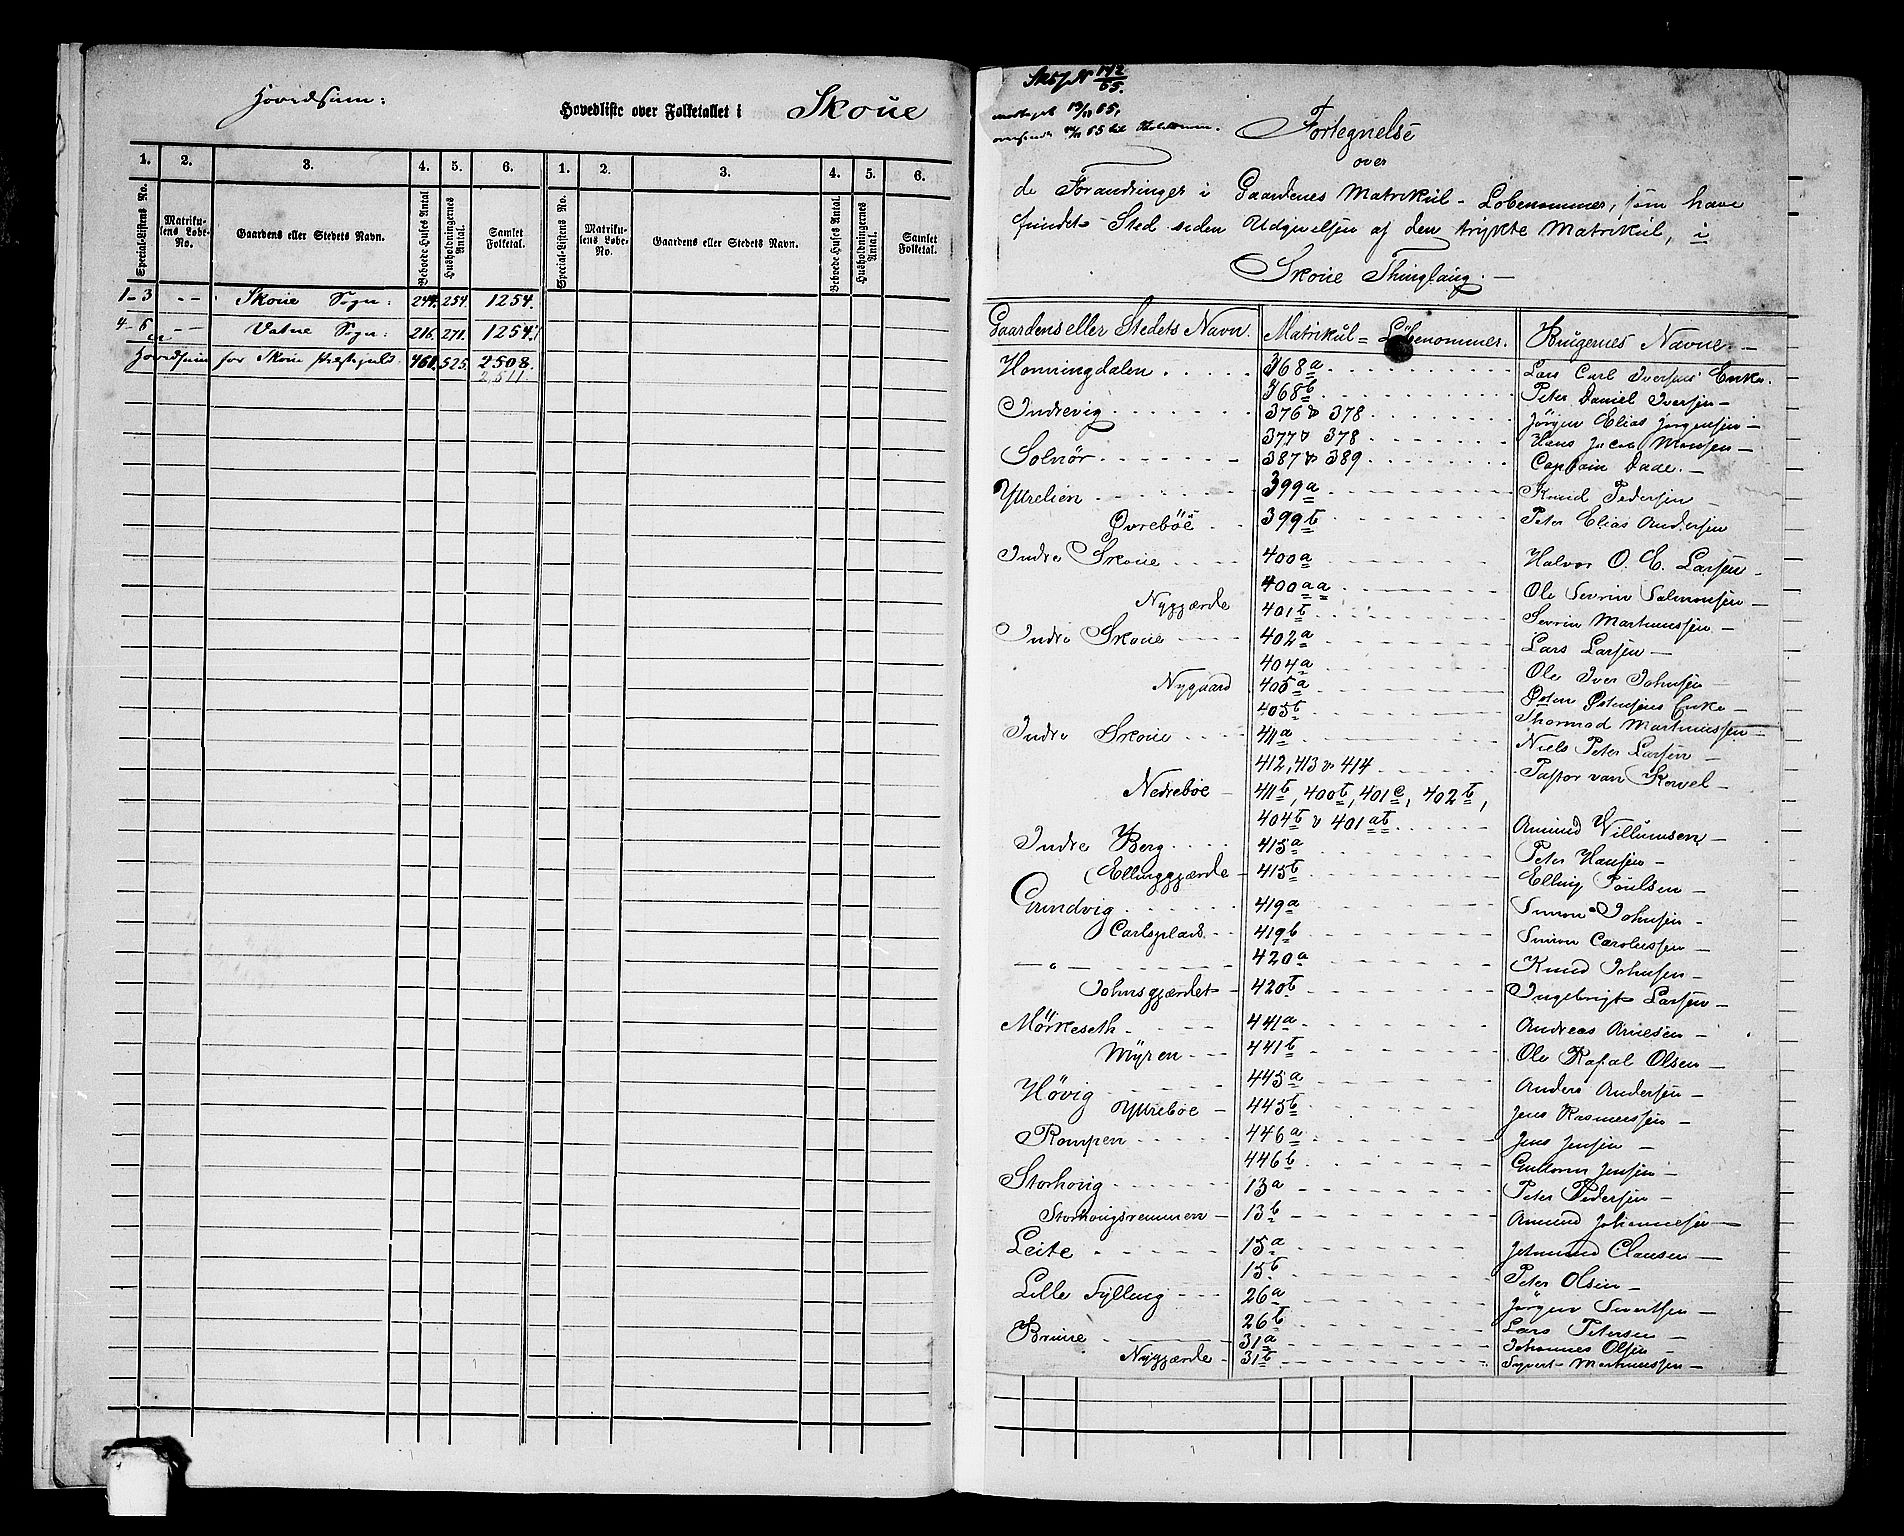 Hovedsum:
Hovedliste over Folketallet i Skoue
1. 2. 3. 4. 5. 6. 1. 2. 3. 4. 5. 6.
Special-Listens No. Matriku-lens Løbe-No. Gaardens eller Stedets Navn. Beboede Huses Antal Husholdningernes Antal. Samlet Folketal. Special-Listens No. Matriku-lens Løbe-No. Gaardens eller Stedets Navn. Beboede Huses Antal. Husholdningernes Antal. Samlet Folketal.
1-3 -- Skoue Sogn: 244. 254. 1254.
4-6 -- Vatne Sogn: 216. 271. 1254.
Hovedsum for Skoue Præstegjeld. 460. 525. 2508.
2,511.
Fortegnelse
over
de Forandringer i Gaardenes Matrikul-Löbenommer, som have
fundet Sted siden Udgivelsen af den trykte Matrikul, i
Skoue Thinglaug. —
Gaardens eller Stedets Navn. Matrikul = Löbenommer. Brugernes Navne. —
Honningdalen 368a Lars Carl Iversens Enke.
368b Peter Daniel Iversen —
Indrevig 376 & 378 Jörgen Elias Jörgensen —
377 & 378 Hans Jacob Monsen —
Solnör 387 & 389 Captain Daae. —
Yttrelien 399a Knud Pedersen —
Øvrebøe 399b Peter Elias Andersen
Indre Skoue 400a Halvor O. E. Larsen
400aa Ole Sevrin Salmonsen —
Nygjærde 401b Sevrin Martinussen —
Indre Skoue 402a Lars Larsen —
404a Ole Iver Johnsen
Nygaard 405a Østen Østensens Enke —
405b Thormod Martinussen —
Indre Skoue 411a Niels Peter Larsen —
412, 413 & 414 Pastor van Kervel —
Nedrebøe 411b, 400b, 401c, 402b,
404b & 401ab Amund Villumsen —
Indre Berg 415a Peter Hansen —
Ellinggjærde 415b Elling Poulsen —
Grundvig 419a Simon Johnsen —
Carlsplads 419b Simon Carolussen —
— " — 420a Knud Johnsen —
Johnsgjærdet 420b Ingebrigt Larsen —
Mörkeseth 441a Andreas Arnesen —
Myren 441b Ole Rafal Olsen —
Hövig 445a Anders Andersen —
Yttrebøe 445b Jens Rasmussen —
Rompen 446a Jens Jensen —
446b Guttorm Jensen —
Storhoug 13a Peter Pedersen —
Storhougsremmen 13b Amund Johannesen —
Leite 15a Jetmund Clausen —
15b Peter Olsen —
Lille Fylling 26a Jörgen Sivertsen —
26b Lars Petersen —
Brune 31a Johannes Olsen —
Nygjærde 31b Syvert Martinussen —